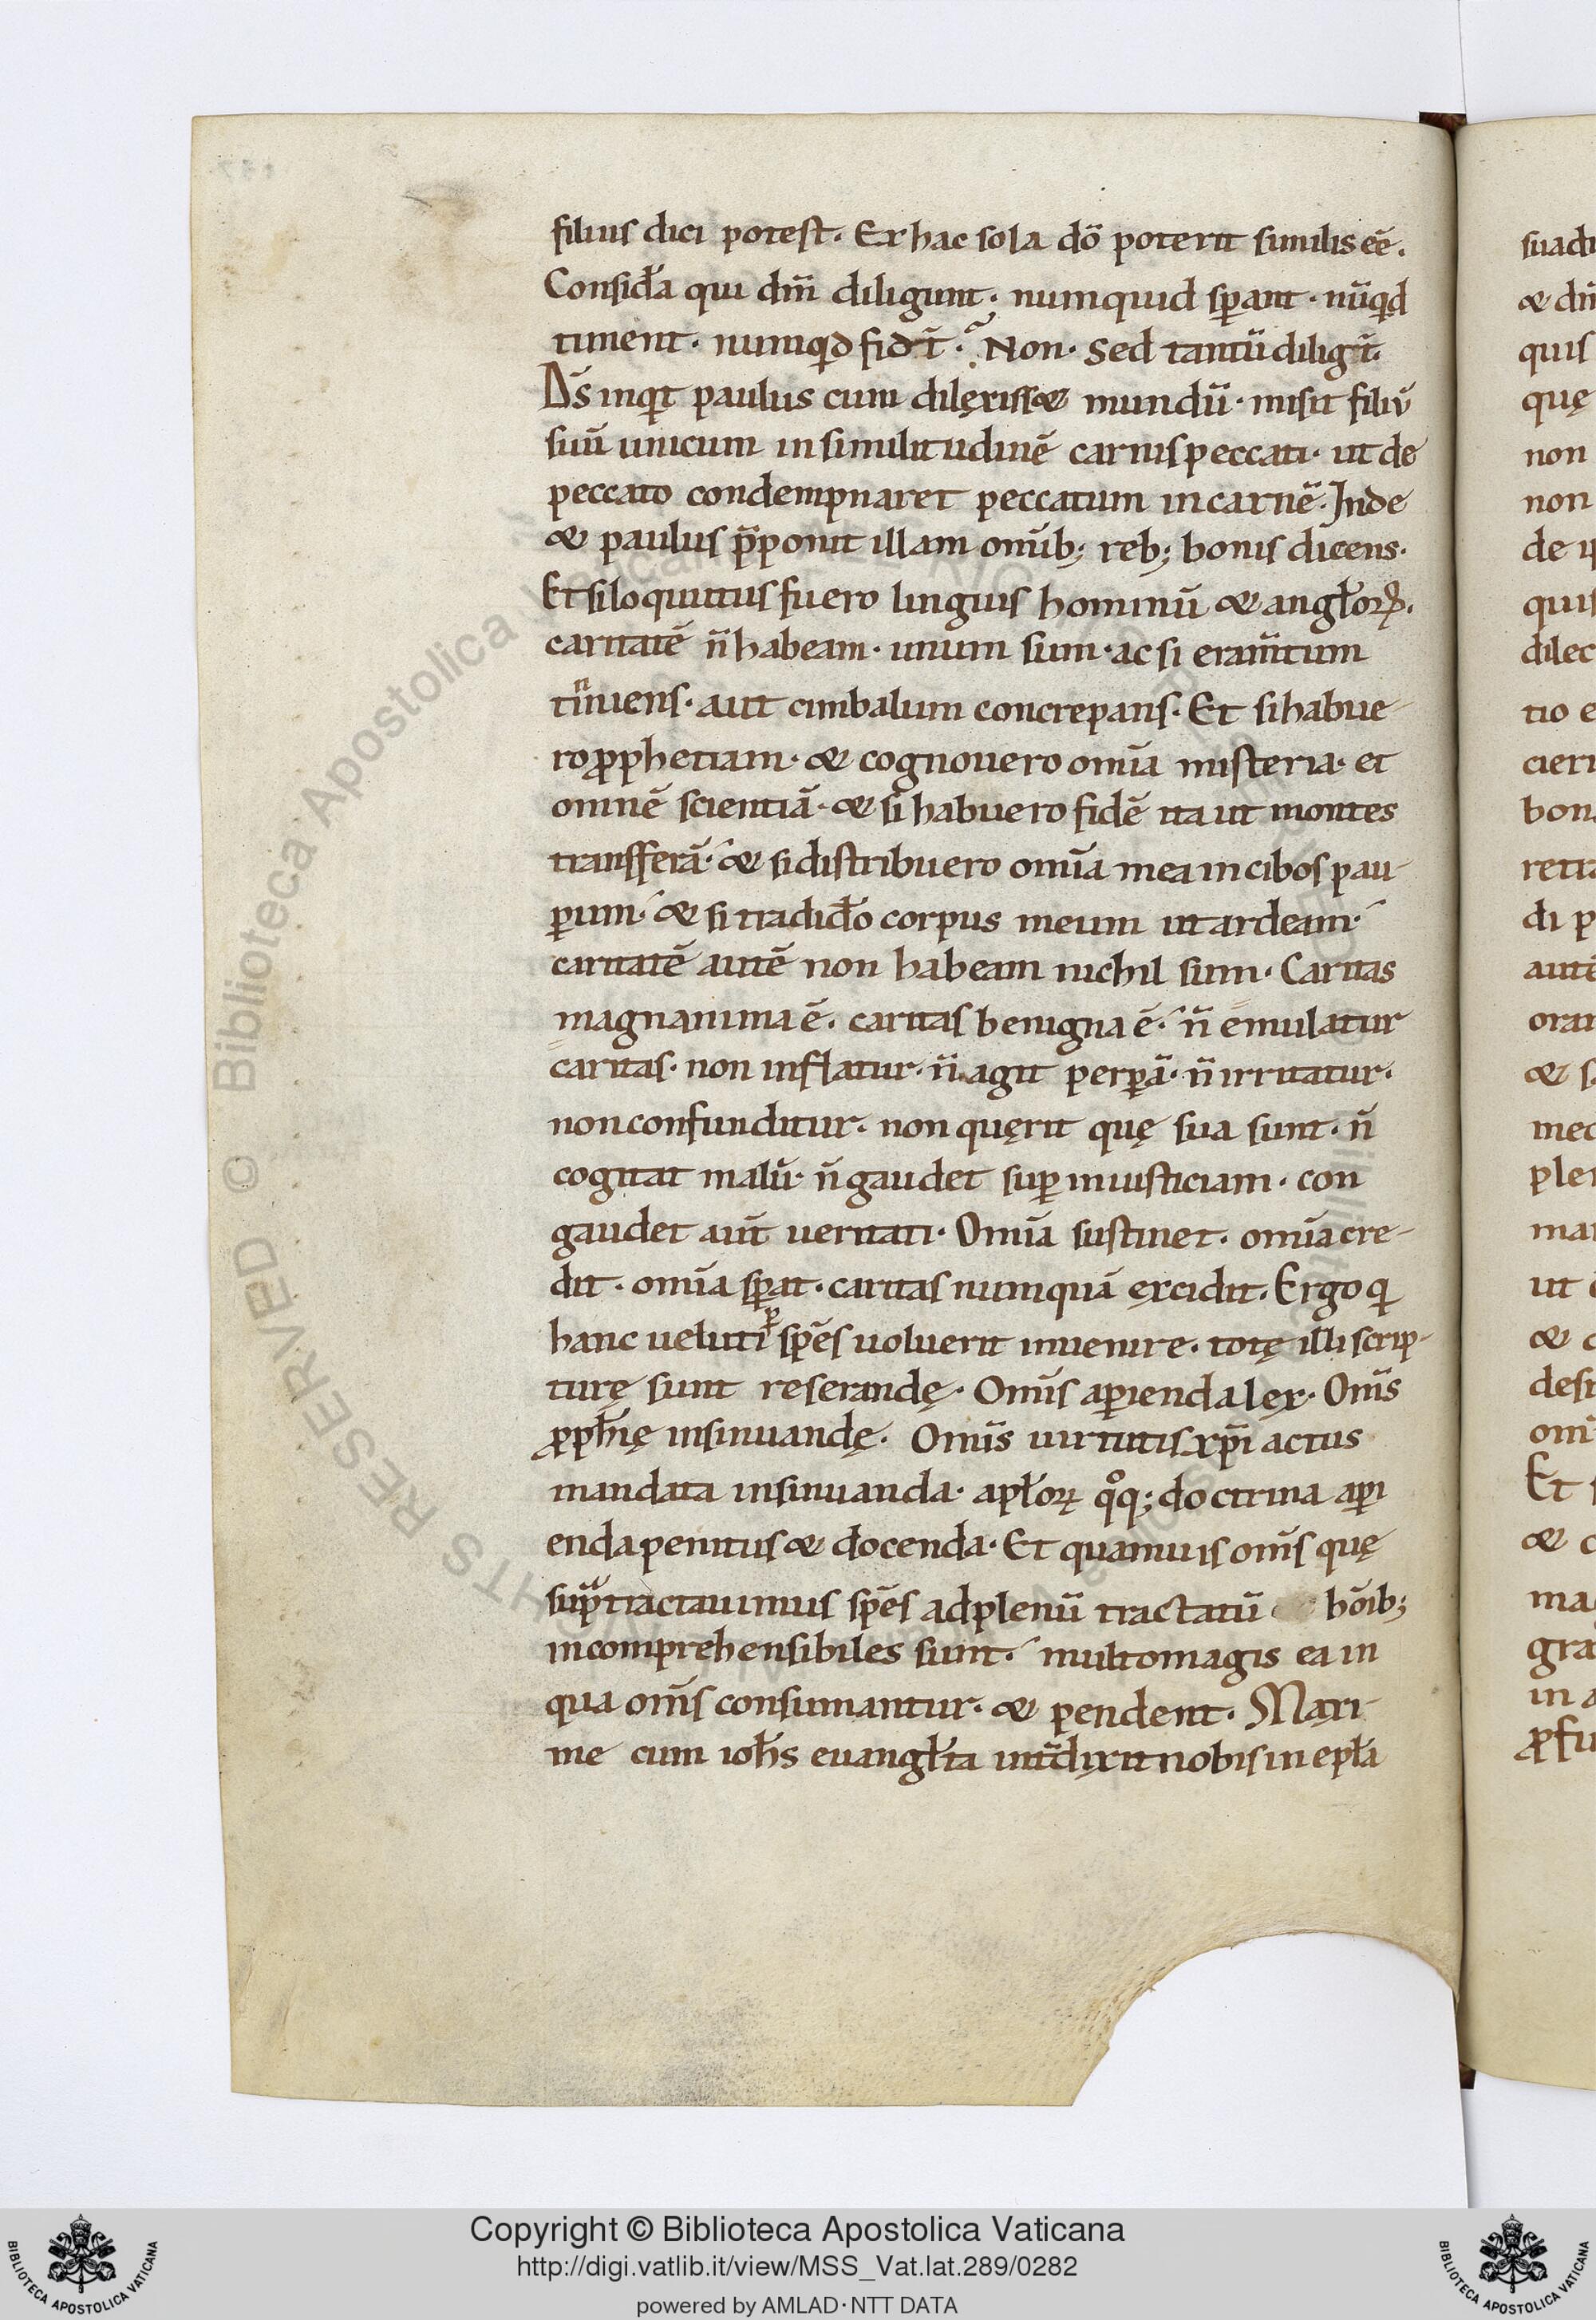 filius dici potest. Ex hac sola dō poterit similis eē.
Considȩ̄a qui dm̄ diligunt; numquid sꝑant. nūqd
timent. numqd fidt̄. Non. Sed tantū diligt̄.
Ds̄ inqt paulus cum dilęxiss& mundū. misit filiū
suū unicum in similitudinē carnis peccati. ut de
peccato condempnaret peccatum in carnē. Inde
& paulus p̄ponit illam omīb; reb; bonis dicens.
Et si loquutus fuero linguis hominū & angl̄oꝝ.
caritatē n̄ habeam. unum sum. ac si eram̄tum
tinniens. aut cimbalum concrepans. Et si habue
ro ꝓphetiam. & cognouero omīa misteria. et
omnē scientiā. & si habuero fidē ita ut montes
transferā. & si distribuero omīa mea in cibos pau
ꝑum. & si tradid̄o corpus meum ut ardeam.
caritatē autē non habeam nichil sum. Caritas
magnanima ē. caritas benigna ē. n̄ emulatur
caritas. non inflatur. n̄ agit perꝑā. n̄ irritatur.
non confunditur. non quęrit quę sua sunt. n̄
cogitat malū. n̄ gaudet suꝑ iniusticiam. con
gaudet aūt ueritati. Omīa sustinet. omīa cre-
dit. omīa sꝑat. caritas numquā ęxcidit. Ergo qi
hanc ueluti ꝑ spēs uoluerit inuenire. totę illi scrip-
turę sunt reserandę. Omīs aꝑienda lęx. Omīs
ꝓph̄ię insinuandę. Omīs uirtutis xp̄i actus
mandata insinuanda. apl̄oꝝ qoq; doctrina aꝑi
enda penitus & docenda. Et quamuis om̄s quę
supra tractauimus spēs ad plenū tractatū hōib;
incomprehensibiles sunt. multo magis ea in
qua om̄s consumantur. & pendent. Maxi
me cum ioh̄s euangl̄ista intdixit nobis in epl̄a
Copyright © Biblioteca Apostolica Vaticana
http://digi.vatlib.it/view/MSS_Vat.lat.289/0282
powered by AMLAD·NTT DATA